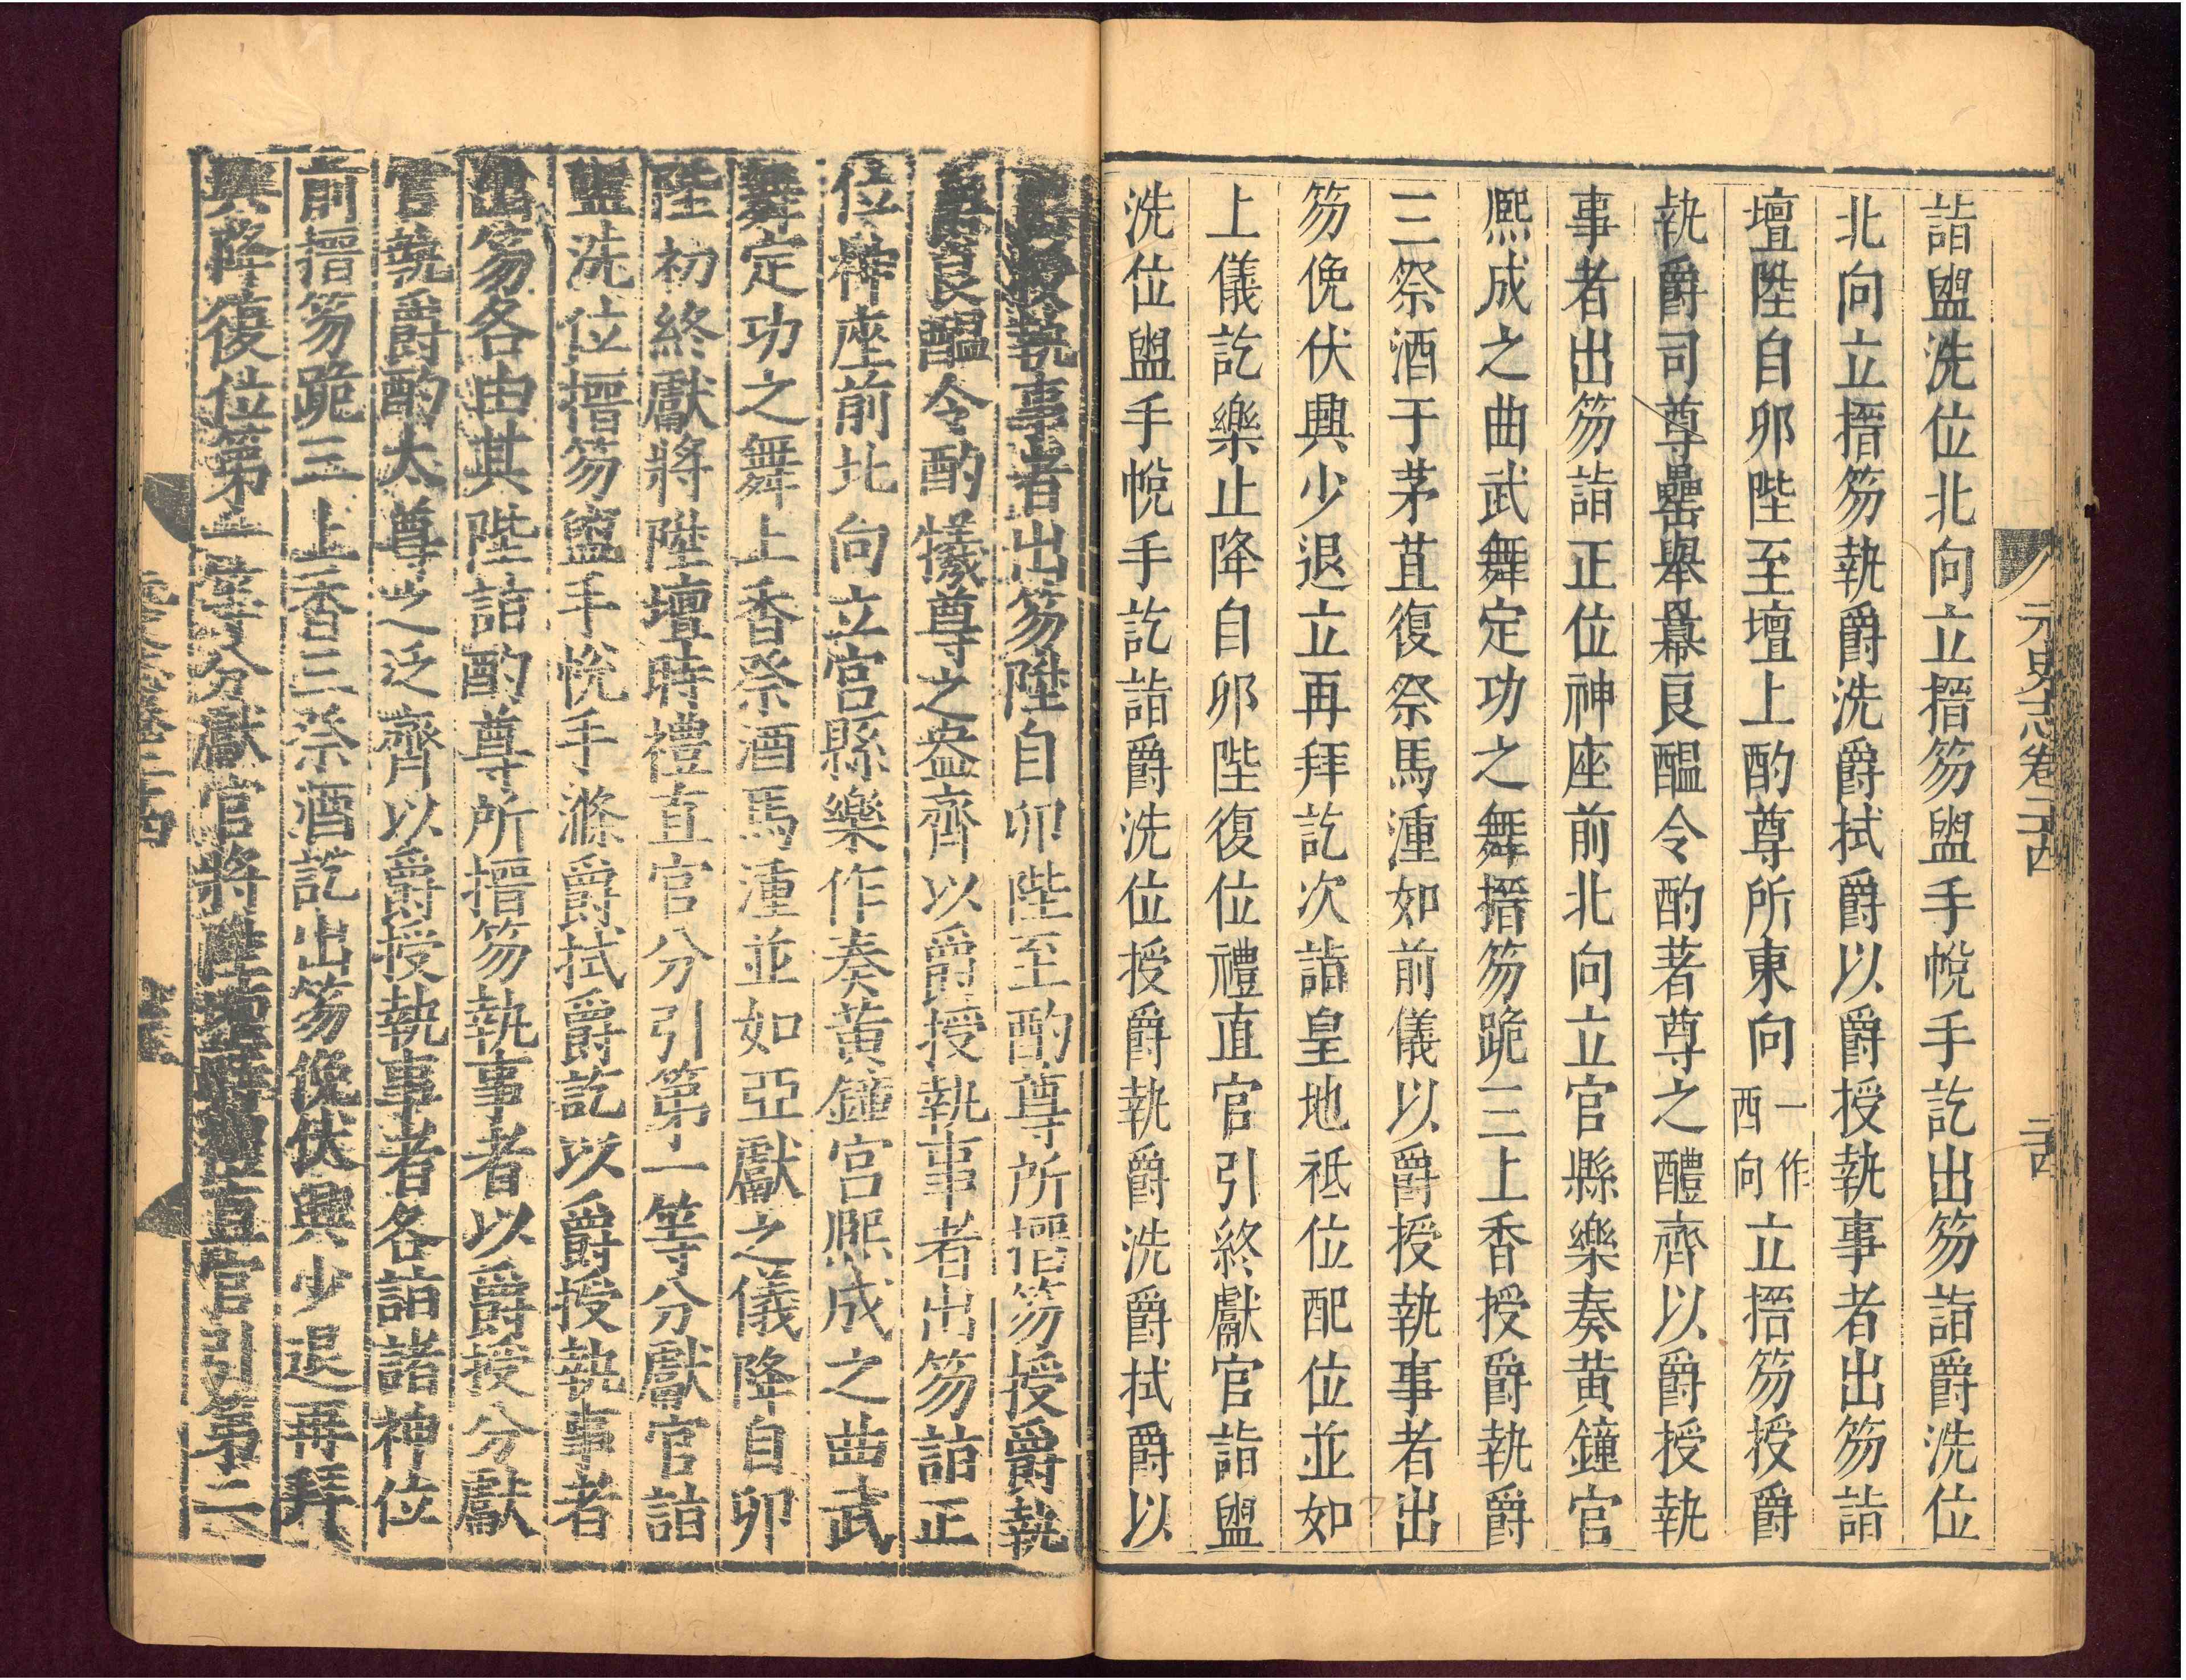 元史志卷二十四
二十四
詣盥洗位北向立搢笏盥手帨手訖出笏詣爵洗位
北向立搢笏執爵洗爵拭爵以爵授執事者出笏詣
壇陞自卯陛至壇上酌尊所東向一作西向立搢笏授爵
執爵司尊罍舉冪良醞令酌著尊之醴齊以爵授執
事者出笏詣正位神座前北向立官縣樂奏黃鐘官
熈成之曲武舞定功之舞搢笏跪三上香授爵執爵
三祭酒于茅苴復祭馬湩如前儀以爵授執事者出
笏俛伏興少退立再拜訖次詣皇地祇位配位並如
上儀訖樂止降自卯陛復位禮直官引終獻官詣盥
洗位盥手帨手訖詣爵洗位授爵執爵洗爵拭爵以
執事者出笏陞自卯陛至酌尊所搢笏授爵執
良醞令酌犧尊之盎齊以爵授執事者出笏詣正
位神座前北向立宮縣樂作奏黃鐘宮熈成之曲武
舞定功之舞上香祭酒馬湩並如亞獻之儀降自卯
陛初終獻將陞壇時禮直官分引第一等分獻官詣
盥洗位搢笏盥手帨手滌爵拭爵訖以爵授執事者
出笏各由其陛詣酌尊所搢笏執事者以爵授分獻
官執爵酌太尊之泛齊以爵授執事者各詣諸神位
前搢笏跪三上香三祭酒訖出笏俛伏興少退再拜
興降復位第一等分獻官將陞壇時禮直官引第二